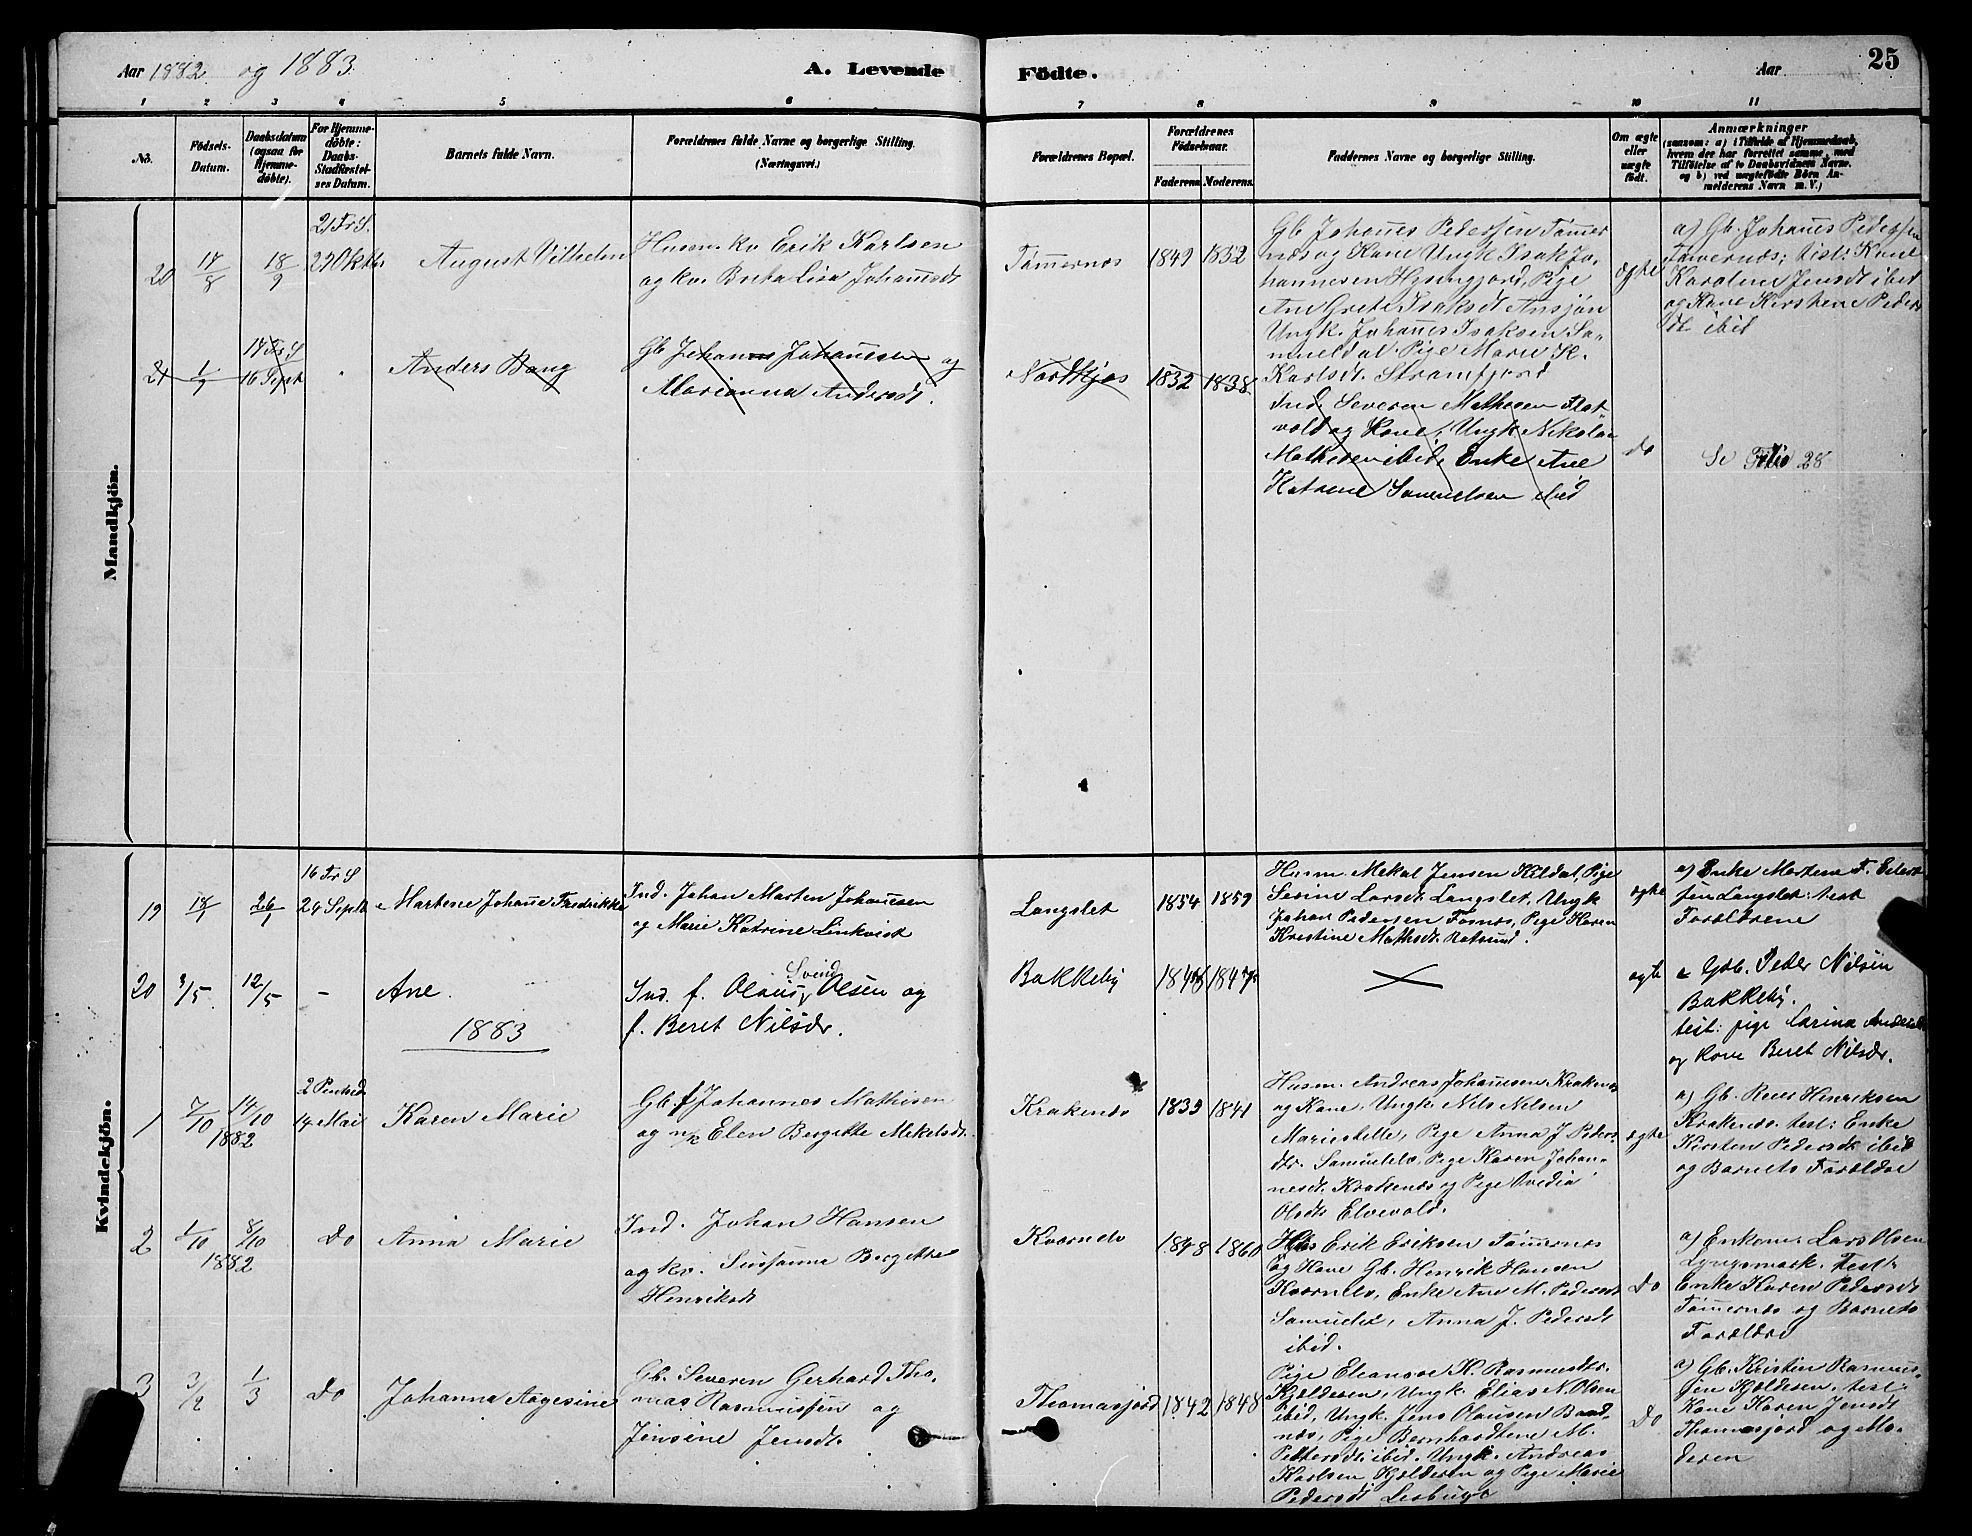 Aar 1882 og 1883.
A. Levende
Födte.
Aar
25
1 2 3 4 5 6 7 8 9 10 11
No.
Födsels-
Datum.
Daabsdatum
(ogsaa for
Hjemme-
döbte).
For Hjemme-
döbte:
Daabs-
Stadfæstel-
ses Datum.
Barnets fulde Navn.
Forældrenes fulde Navne og borgerlige Stilling.
(Næringsvei.)
Forældrenes Bopæl.
Forældrenes
Födselsaar.
Faderens. Moderens.
Faddernes Navne og borgerlige Stilling.
Om ægte
eller
uægte
födt.
Anmærkninger
(saasom: a) i Tilfælde af Hjemmedaab,
hvem der har forrettet samme, med
Tilföielse af to Daabsvidners Navne,
og b) ved uægtefödte Börn An-
melderens Navn m. V.)
Mandkjön.
20
17/8
18/9
21 Tr S.
29 Oktbr
August Vilhelm
Husm. kv Erik Karlsen
og kv. Brita Lisa Johannesdt
Tømernes
1849 1852
Gb Johannes Pedersen Tømer
næs og Kone Ungk Isak Jo-
hannesen Hysingjord, Pige
Ane Grete Isaksdt Ansjøn
Ungk. Johannes Isaksen Sa-
mueldal. Pige Marie K.
Karlsdt. Straumfjord
ægte
a) Gb. Johannes Pedersen
Tømernes; test: Kone
Karoline Jensdt ibid
og Kone Kirstine Peders
dt ibid
21
1/9
17 Tr S
16 Sept
Anders Bang
Gb Johannes Johannesen og
Marianna Andersdt.
Nordkjos
1832 1838
Ind. Severen Mathesen Flat-
vold og Kone, Ungk Nikolai
Mathesen ibid, Enke Ane
Katrine Samuelsen ibid
Do
Se Folio 28
Kvindekjön.
19
18/1
26/1
16 Tr S
24 Septb
Martene Johanne Fredrikke
Ind. Johan Marten Johannesen
og Marie Katrine Linkvist
Langslet
1854 1859
Husm. Mekal Jensen Kildal, Pige
Serine Larsdt. Langslet, Ungk
Johan Pedersen Fosnes, Pige Karen
Kristine Mathsdt. Rotsund.
ægte
a) Enke Martena F. Eilert
sen Langslet: test
Forældrene
20
3/5
12/5
-
Ane.
Ind. f. Olaus Svend Olsen og
f. Beret Nilsdr.
Bakkeby
1845 1847
ægte
a Gbb. Peder Nilsen
Bakkeby.
test: pige Carina Andersdt
og Kone Beret Nilsdr.
1883
1
7/10
14/10
1882
2 Pintsed
14 Mai
Karen Marie
Gb. f Johannes Mathisen
og n/k Elen Bergitte Mekelsdt.
Krakenes
1839 1841
Husm. Andreas Johannesen Krakenes
og Kone, Ungk. Nils Nelsen
Mariestelle, Pige Anna J. Peders-
dtr. Samuelelv, Pige Karen Johan-
nesdt. Krakenæs og Pige Ovedia
Olsdt. Elvevold.
ægte
a) Gb. Reier Henriksen
Krakenæs. test: Enke
Kirsten Pedersdt ibid
og Barnets Forældre
2
1/10
8/10
1882
Do
Anna Marie
Ind. Johan Hansen
og kv. Susanna Bergitte
Henriksdt
Kvernelv
1848 1860
Erik Eriksen Tømernes
og Kone Gb. Henrik Hansen
Kvernelv, Enke Ane M. Pedersdt
Samuelelv, Anna J. Pedersdt
ibid.
Do
a) Enkem. Lars Olsen
Lyngsmark. Test:
Enke Karen Pedersdt
Tømernes og Barnets
Forældre
3
3/2
1/3
Do
Johanna Aagesine
Gb. Severen Gerhard Tho-
mas Rasmussen og
Jensine Jensdt.
Thomasjord
1842 1848
Pige Eleanore K. Rasmusdtr.
Kjeldesen, Ungk. Elias N. Olsen
ibid, Ungk. Jens Olausen Bend-
næs, Pige Bernhardtene M.
Pettersdt. ibid. Ungk. Andreas
Karlsen Kjeldesen og Pige Marie
Pedersdt
Do
a) Gb. Kristen Rasmus-
sen Kjeldesen. test:
Kone Karen Jensdt
Thomasjord og Mo-
deren